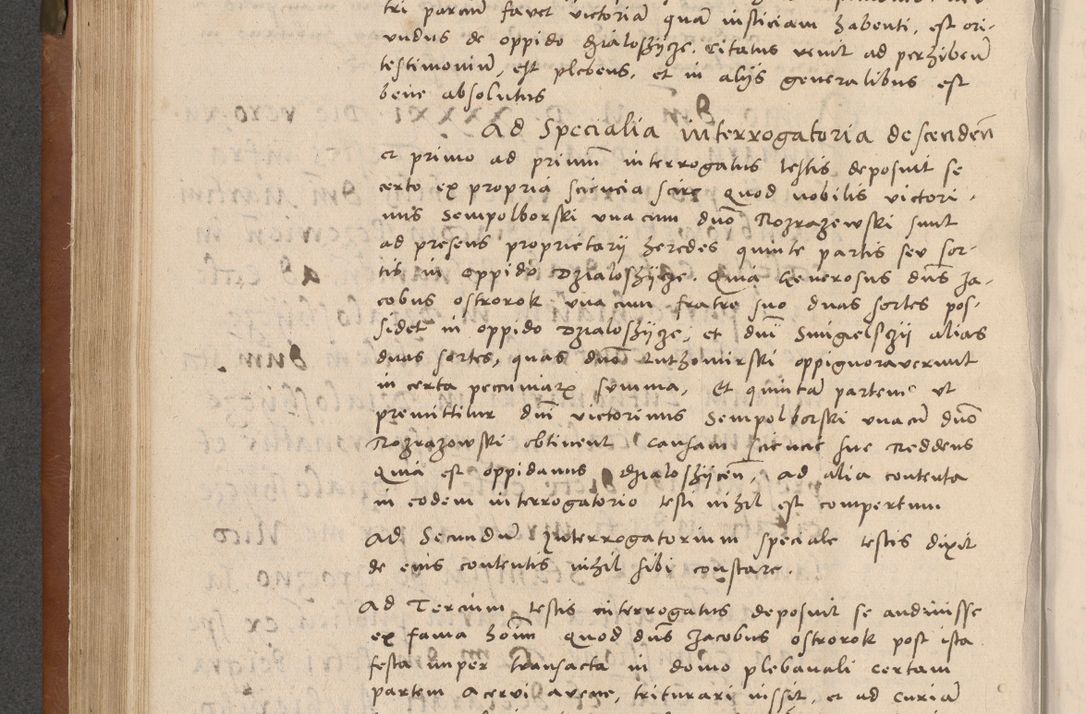 tri parcium favet victoriam quam iusticiam habenti, est ori-
undus de oppido dzialoschycze, citatus venit ad perhibendum
testimonium, est plebeus, et in aliis generalibus est
bene absolutus
Ad Specialia interrogatoria descenden
et primo ad primum interrogatus testis deposuit se
certo ex propria sciencia scire Quod nobilis victori-
nus Sempolborski una cum duo Rozrazewski sunt
ad presens proprietarii heredes quinte partis seu sor-
tis in oppido Dzialoschycze. Quia Generosus dns Ja-
cobus ostrorok una cum fratre suo duas sortes pos-
sidet in oppido Dzialoschycze, et dni Smigielsczii alias
duas sortes, quas dno Luthomirski oppignoraverunt
in certa pecuniarum summa, Et quintam partem ut
premittitur dni victorinus Sempolborski una cum dno
Rozrazowski obtinent Causam sciencie sue Reddens
Quia est oppidanus dzialoschycen, ad alia contenta
in eodem interrogatorio testi nihil est compertum
Ad Secundum Interrogatorium speciale testis dixit
de eius contentis nihil sibi constare.
Ad Tercium testis interrogatus deposuit se audivisse
ex fama hom Quod dns Jacobus ostrorok post ista
festa nuper transacta in domo plebanali certam
partem acervi avene, triturari iussit, et ad curiam